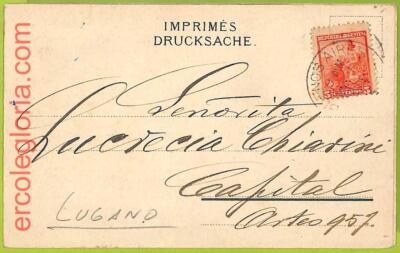 IMPRIMÉS
DRUCKSACHE.
REPUBLICA ARGENTINA
Señorita
Lucrecia Chiarini
Capital
Artes 957.
LUGANO
ercolegloria.com